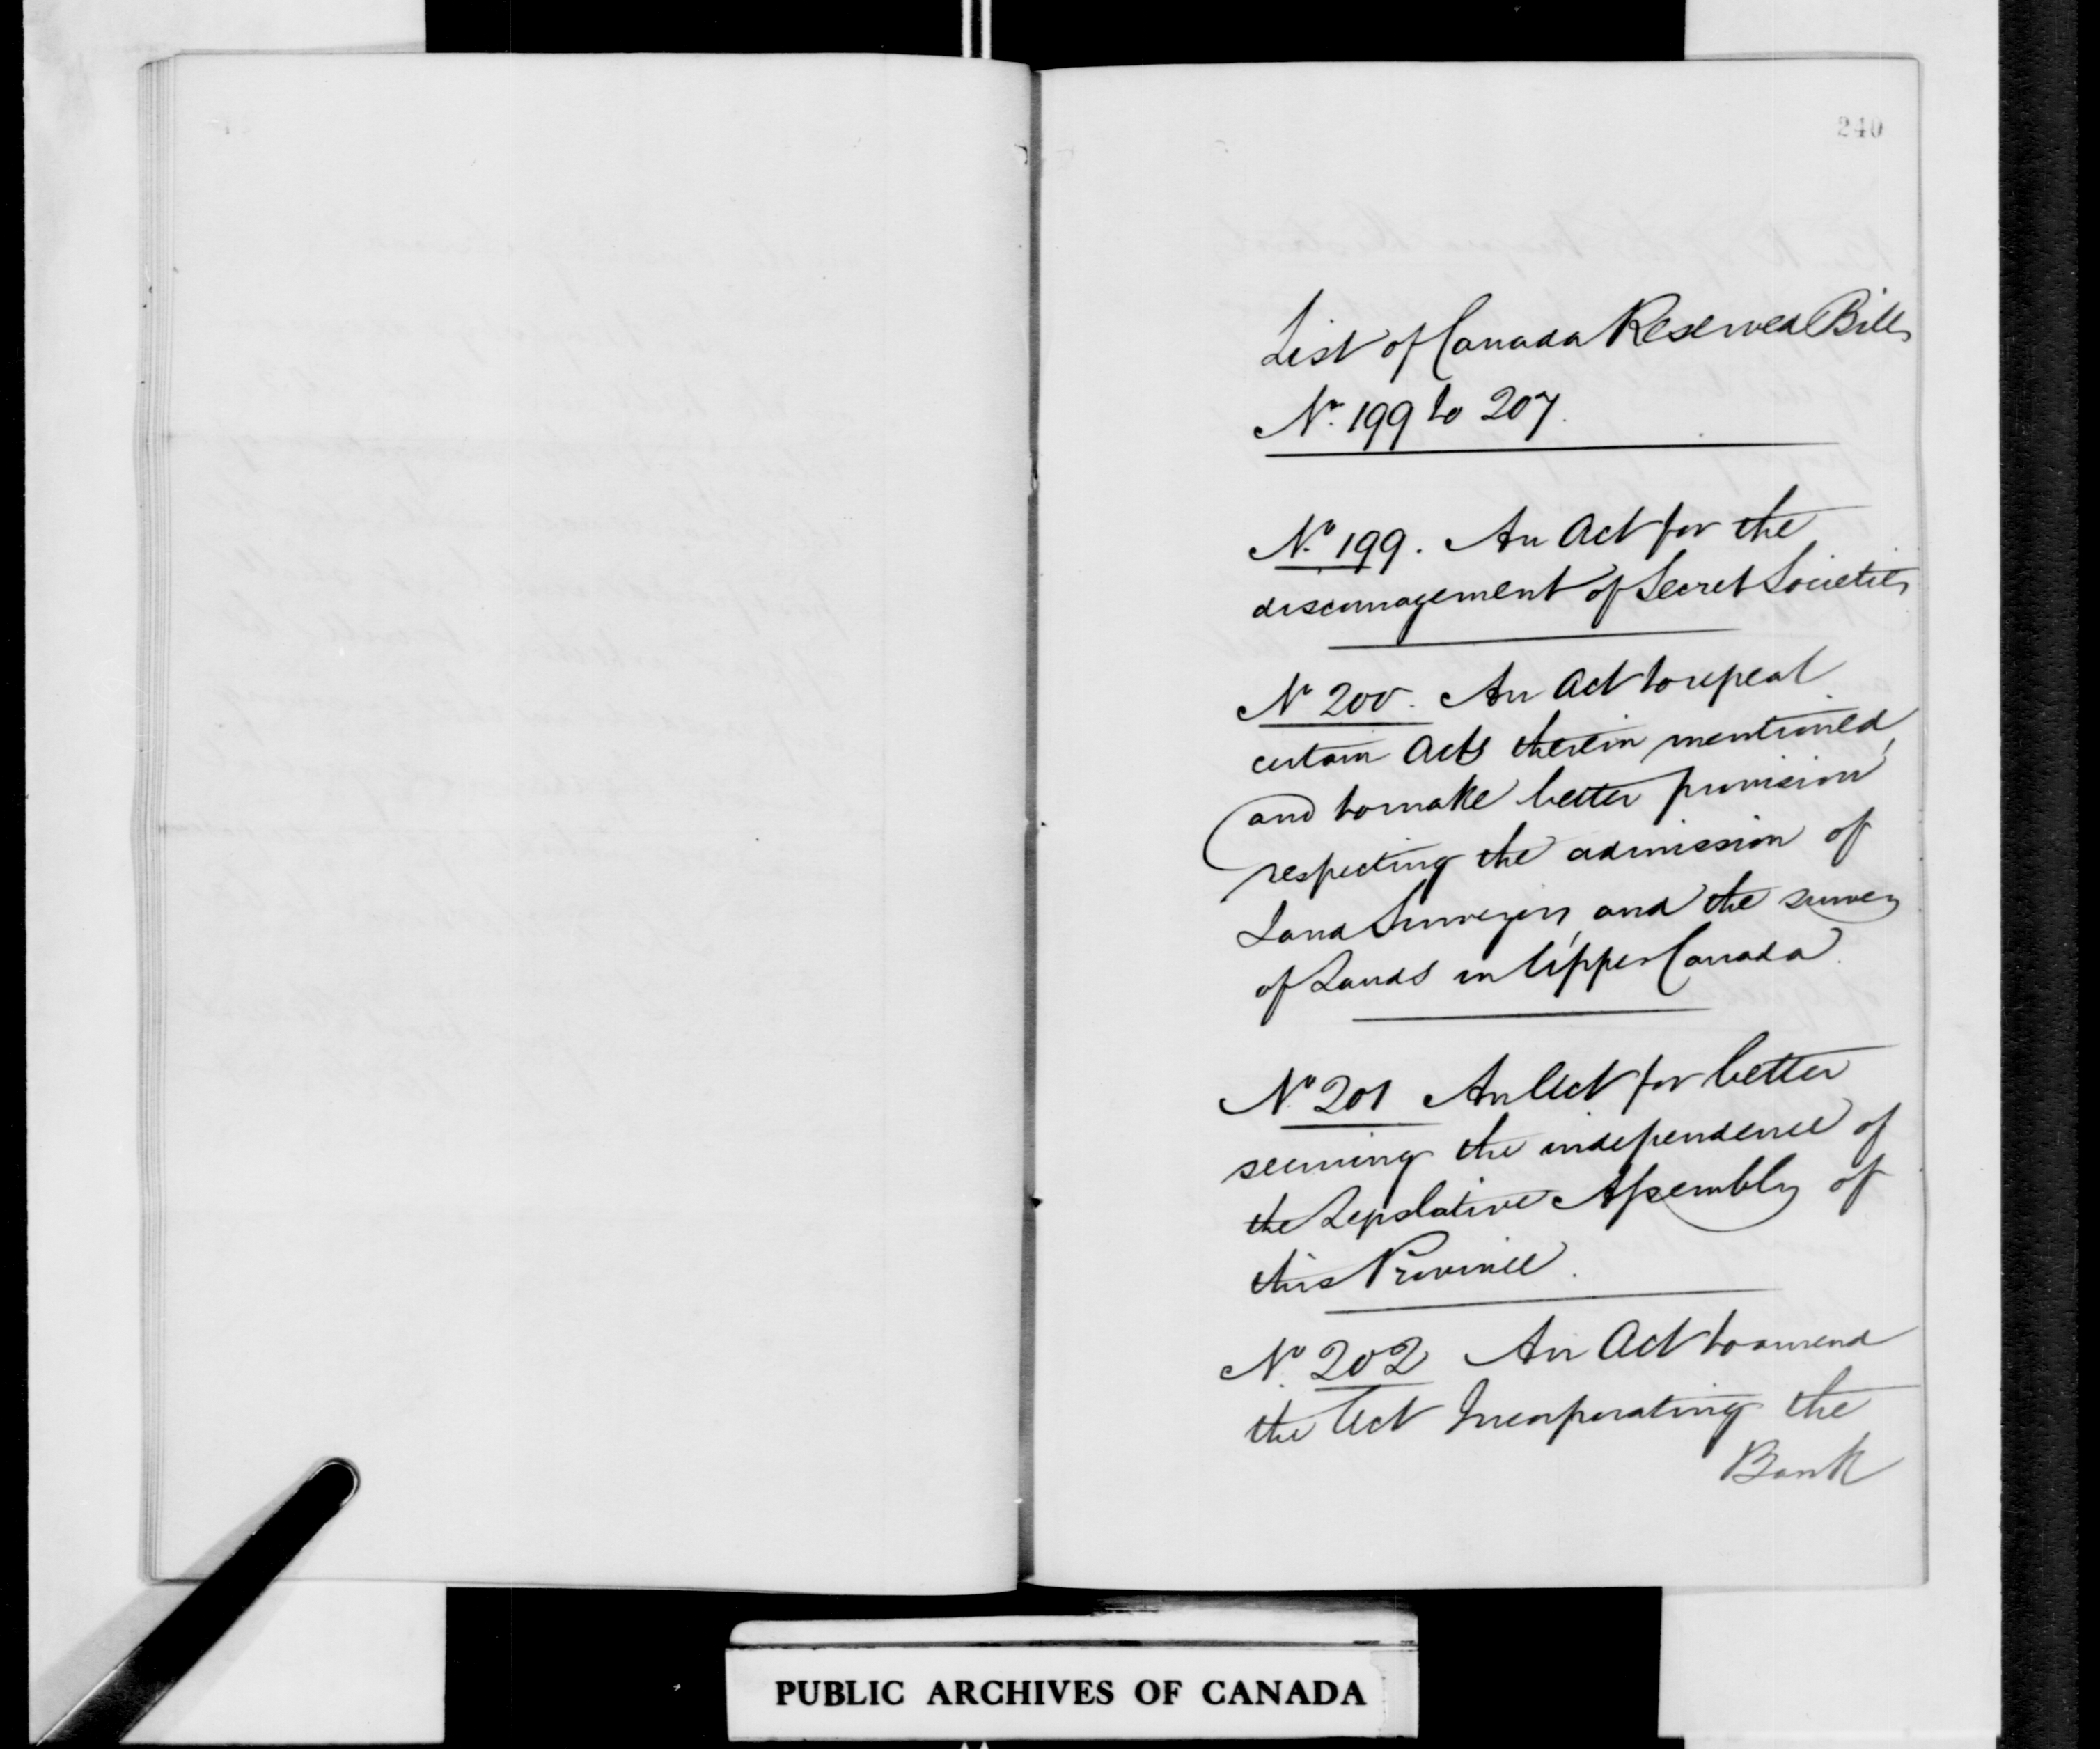 240
List of Canada Reserved Bills
No. 199 to 207.
No. 199. An Act for the
discouragement of Secret Societies
No 200. An Act to repeal
certain Acts therein mentioned,
and to make better provision
respecting the admission of
Land Surveyors, and the survey
of Lands in Upper Canada.
No. 201 An Act for better
securing the independence of
the Legislative Assembly of
this Province.
No. 202 An Act to amend
the Act Incorporating the
Bank
PUBLIC ARCHIVES OF CANADA